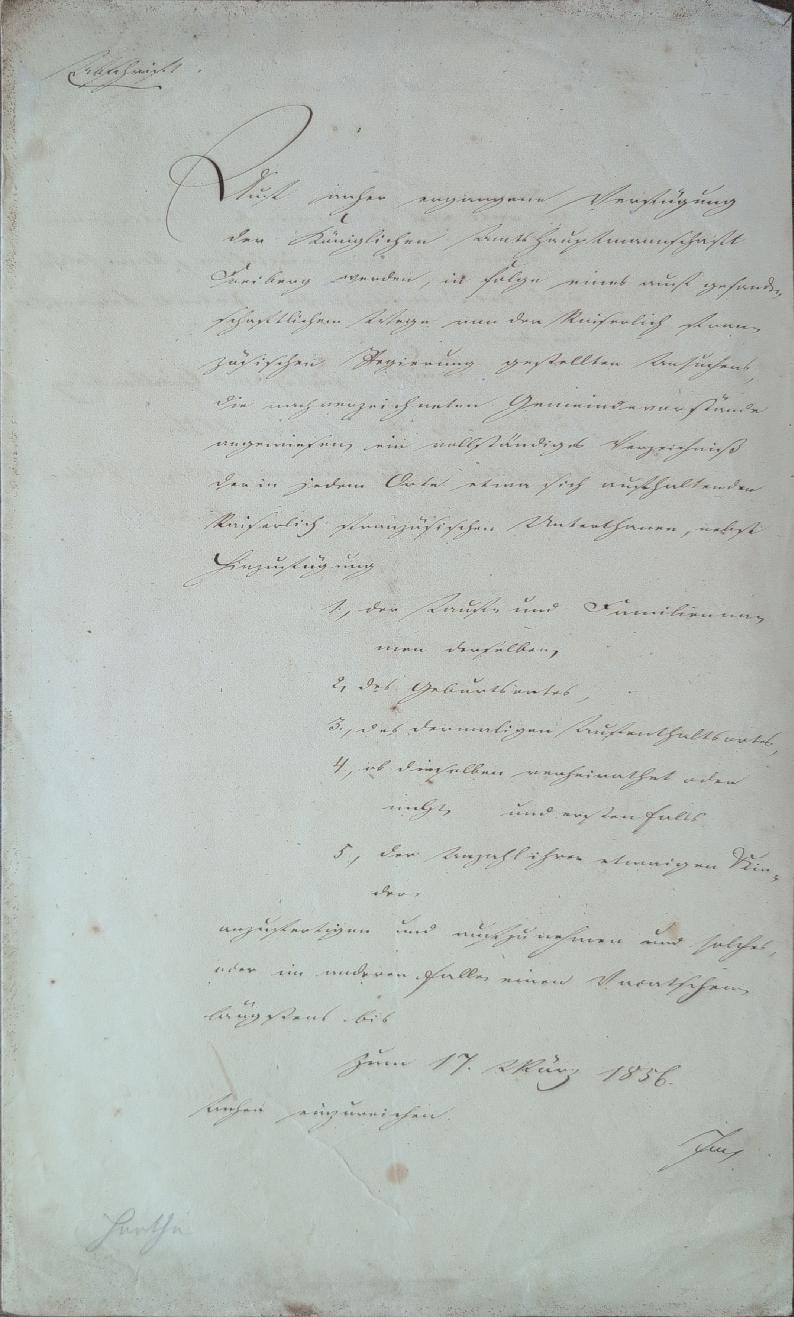 Abschrift.
Auf anher ergangene Verfügung
der Königlichen Amtshauptmannschaft
Freiberg werden, in Folge eines auf gesand-
schaftlichem Wege von der Kaiserlich Fran-
zösischen Regierung gestellten Ansuchens,
die nachverzeichneten Gemeindevorstände
angewiesen, ein vollständiges Verzeichniß
der in jedem Orte etwa sich aufhaltenden
Kaiserlich Französischen Unterthanen, nebst
Hinzufügung
1., der Tauf- und Familienna-
men derselben,
2, des Geburtsortes,
3., des dermaligen Aufenthaltsortes,
4, ob dieselben verheirathet oder
nicht, und ersten Falls
5., der Anzahl ihrer etwaigen Kin-
der,
anzufertigen und aufzunehmen und solches,
oder im anderen Falle, einen Vacatschein,
längstens bis
zum 17. März 1856.
anher einzureichen.